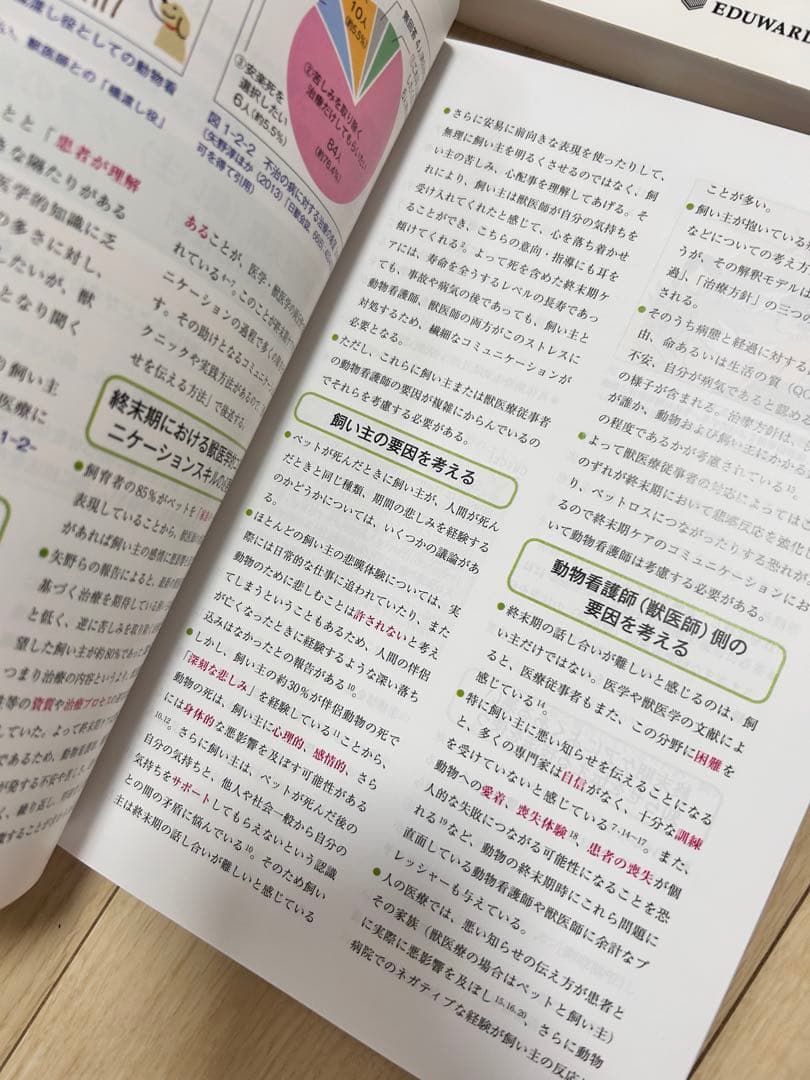 EDUWARD
渡し役としての動物看
獣医師との「橋渡し役」
とと「患者が理解
きな隔たりがある
医学的知識に乏
の多さに対し、
したいが、獣
となり聞く
の飼い主
医療に
1-2-
10人
(約5.5%)
③安楽死を
選択したい
6人(約5.5%)
②苦しみを取り除く
治療だけしてもらいたい
84人
(約76.4%)
図1-2-2 不治の病に対する治療の
(矢野淳ほか(2013)「日獣会誌、66
可を得て引用)
あることが、医学・獣医学の
れている4~7。このことが終末期ケ
ニケーションの過程で多くの
す。その助けとなるコミュニケー
クニックや実践方法があるので、
せを伝える方法」で後述する。
終末期における獣医学
ニケーションスキルの
●飼育者の85%がペットを「家
表現していることから、
があれば飼い主の感情に
●矢野らの報告によると、
基づく治療を期待している
と低く、逆に苦しみを取り除く
望した飼い主が約80%であった
つまり治療の内容というより、
性等の資質や治療プロセスの
していた。よって終末期ケア
であるため、動物看護師
が発する不安や
く、繰り返し、
●さらに安易に前向きな表現を使ったりして、
無理に飼い主を明るくさせるのではなく、飼
い主の苦しみ、心配事を理解してあげる。そ
れにより、飼い主は獣医師が自分の気持ちを
受け入れてくれたと感じて、心を落ち着かせ
ることができ、こちらの意向・指導にも耳を
傾けてくれる2。よって死を含めた終末期ケ
アには、寿命を全うするレベルの長寿であっ
ても、事故や病気の後であっても、飼い主と
動物看護師、獣医師の両方がこのストレスに
対処するため、繊細なコミュニケーションが
必要となる。
●ただし、これらに飼い主または獣医療従事者
の動物看護師の要因が複雑にからんでいるの
でそれらを考慮する必要がある。
飼い主の要因を考える
●ペットが死んだときに飼い主が、人間が死ん
だときと同じ種類、期間の悲しみを経験する
のかどうかについては、いくつかの議論があ
る。
●ほとんどの飼い主の悲嘆体験については、実
際には日常的な仕事に追われていたり、また
動物のために悲しむことは許されないと考え
てしまうということもあるため、人間の伴侶
が亡くなったときに経験するような深い落ち
込みはなかったとの報告がある10。
●しかし、飼い主の約30%が伴侶動物の死で
「深刻な悲しみ」を経験している11ことから、
動物の死は、飼い主に心理的、感情的、さら
には身体的な悪影響を及ぼす可能性がある
10,12。さらに飼い主は、ペットが死んだ後の
自分の気持ちと、他人や社会一般から自分の
気持ちをサポートしてもらえないという認識
との間の矛盾に悩んでいる10。そのため飼い
主は終末期の話し合いが難しいと感じている
ことが多い。
●飼い主が抱いている
などについての考え方
うが、その解釈モデルは
過」、「治療方針」の三つの
される。
●そのうち病態と経過に対する
由、命あるいは生活の質(Q
不安、自分が病気であると認め
の様子が含まれる。治療方針は、
が誰か、動物および飼い主にかかる
の程度であるかが考慮されている13。
●よって獣医療従事者の対応によっては、
のずれが終末期において悲嘆反応を強化
り、ペットロスにつながったりする恐れが
るので終末期ケアのコミュニケーションにお
いて動物看護師は考慮する必要がある。
動物看護師(獣医師)側の
要因を考える
●終末期の話し合いが難しいと感じるのは、飼
い主だけではない。医学や獣医学の文献によ
ると、医療従事者もまた、この分野に困難を
感じている14。
●特に飼い主に悪い知らせを伝えることになる
と、多くの専門家は自信がなく、十分な訓練
を受けていないと感じている7,14~17。また、
動物への愛着、喪失体験18、患者の喪失が個
人的な失敗につながる可能性になることを恐
れる19など、動物の終末期時にこれら問題に
直面している動物看護師や獣医師に余計なプ
レッシャーも与えている。
●人の医療では、悪い知らせの伝え方が患者と
その家族(獣医療の場合はペットと飼い主)
に実際に悪影響を及ぼし15,16,20、さらに動物
病院でのネガティブな経験が飼い主の反応